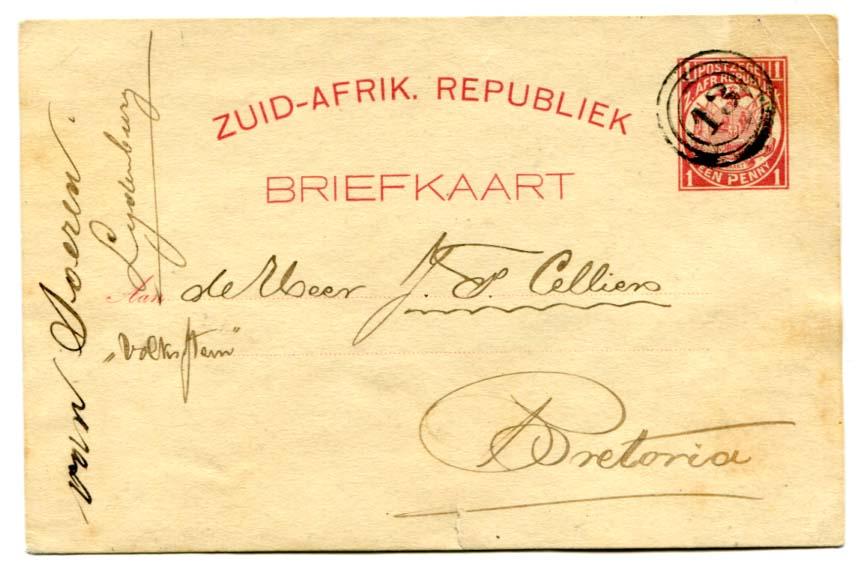 ZUID-AFRIK. REPUBLIEK
BRIEFKAART
1 POSTZEGEL 1
Z. AFR. REPUBLIEK
1 EEN PENNY 1
13
Aan de Heer J. F. Celliers
„Volksstem"
Pretoria
van Doeren.
Lydenburg